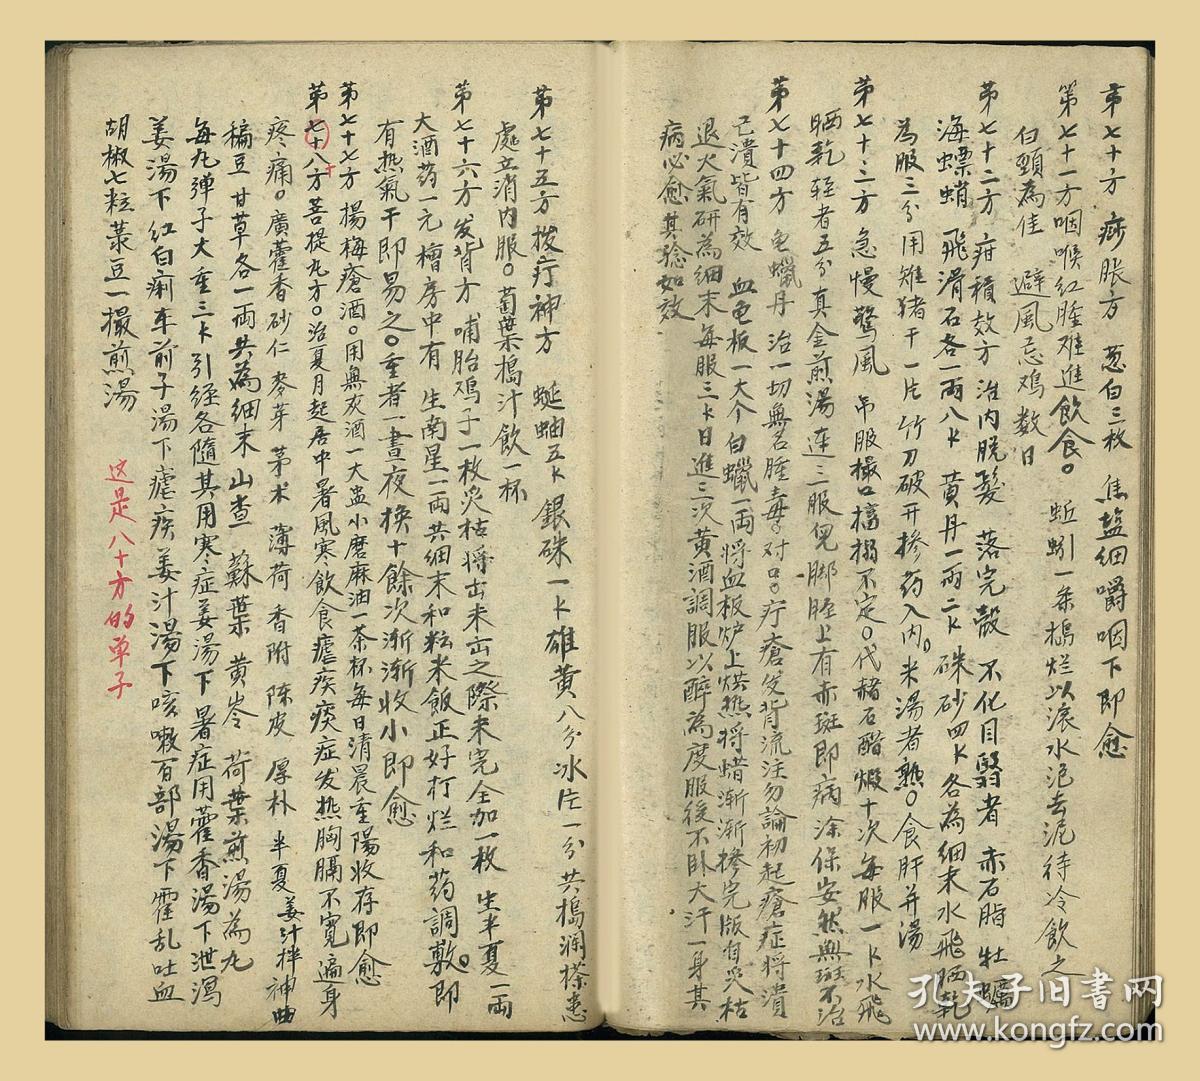 第七十方 痧脹方 葱白三枚 焦盐细嚼咽下即愈
第七十一方咽喉红腫难進飲食。 蚯蚓一条搗烂以滚水泡去泥待冷飲之
白頸為佳 避風忌鸡数日
第七十二方 疳積效方 治内脱髪 落完殼 不化目翳者 赤石脂 牡蠣
海螵蛸 飛滑石各一兩八卜 黄丹一兩二卜 硃砂四卜各為細末水飛晒乾
為服三分用雉猪干一片竹刀破开摻药入内。米湯者熟。食肝并湯
第七十三方 急慢驚風 吊服撮口搐搦不定。代赭石醋煅十次每服一卜水飛
晒乾 轻者五分真金煎湯連三服児脚胫上有赤斑即病除保安然無斑不治
第七十四方 龟蠟丹 治一切無名腫毒对口。疔瘡发背流注勿論初起瘡症将潰
已潰皆有效 血龟板一大个白蠟一兩将血板炉上烘热将蜡漸漸摻完版自炎枯
退火氣研為细末每服三卜日進三次黄酒調服以醉為度服後不卧大汗一身其
病必愈其驗如效
第七十五方拔疔神方 蜒蚰五卜銀硃一卜雄黄八分冰片一分共搗澜搽患
處立消内服。菊葉搗汁飲一杯
第七十六方发背方 哺胎鸡子一枚炎枯将出未出之際未完全加一枚 生半夏一兩
大酒药一元檜房中有 生南星一兩共细末和粘米飯正好打烂和药調敷。即
有热氣干即易之。重者一晝夜换十餘次漸漸收小即愈
第七十七方 揚梅瘡酒。用無灰酒一大盅小磨麻油一茶杯每日清晨重陽收存即愈
第七十八方菩提丸方。治夏月起居中暑風寒飲食瘧疾痰症发热胸膈不寛遍身
疼痛。廣藿香 砂仁 麥芽 茅术 薄荷 香附 陈皮 厚朴 半夏 姜汁拌 神曲
稨豆 甘草各一兩共為細末 山查 蘇葉 黄岑 荷葉煎湯為丸
每丸弹子大重三卜引经各隨其用寒症姜湯下 暑症用藿香湯下泄瀉
姜湯下 红白痢车前子湯下瘧疾姜汁湯下咳嗽百部湯下霍乱吐血
胡椒七粒菉豆一撮煎湯
这是八十方的单子
孔夫子旧书网
www.kongfz.com